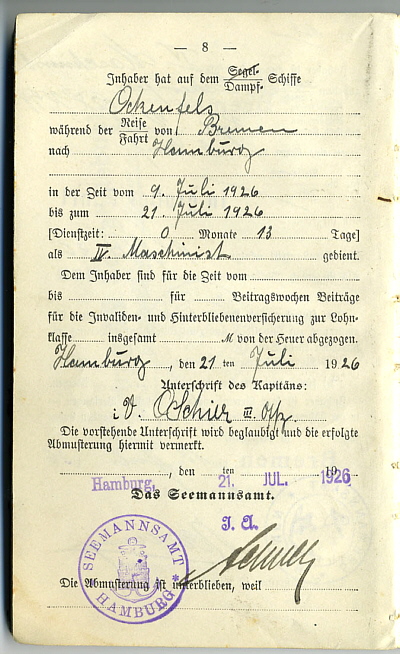 — 8 —
Inhaber hat auf dem Segel- Dampf- Schiffe
Ockenfels
während der Reise Fahrt von Bremen
nach Hamburg
in der Zeit vom 9. Juli 1926
bis zum 21. Juli 1926
[Dienstzeit: 0 Monate 13 Tage]
als IV. Maschinist gedient.
Dem Inhaber sind für die Zeit vom
bis für Beitragswochen Beiträge
für die Invaliden- und Hinterbliebenenversicherung zur Lohn-
klasse insgesamt M von der Heuer abgezogen.
Hamburg, den 21 ten Juli 1926
Unterschrift des Kapitäns:
i. V. III. Offz.
Die vorstehende Unterschrift wird beglaubigt und die erfolgte
Abmusterung hiermit vermerkt.
, den ten 19
Hamburg, 21. JUL. 1926
Das Seemannsamt.
J. A.
SEEMANNSAMT
HAMBURG
Die Abmusterung ist unterblieben, weil